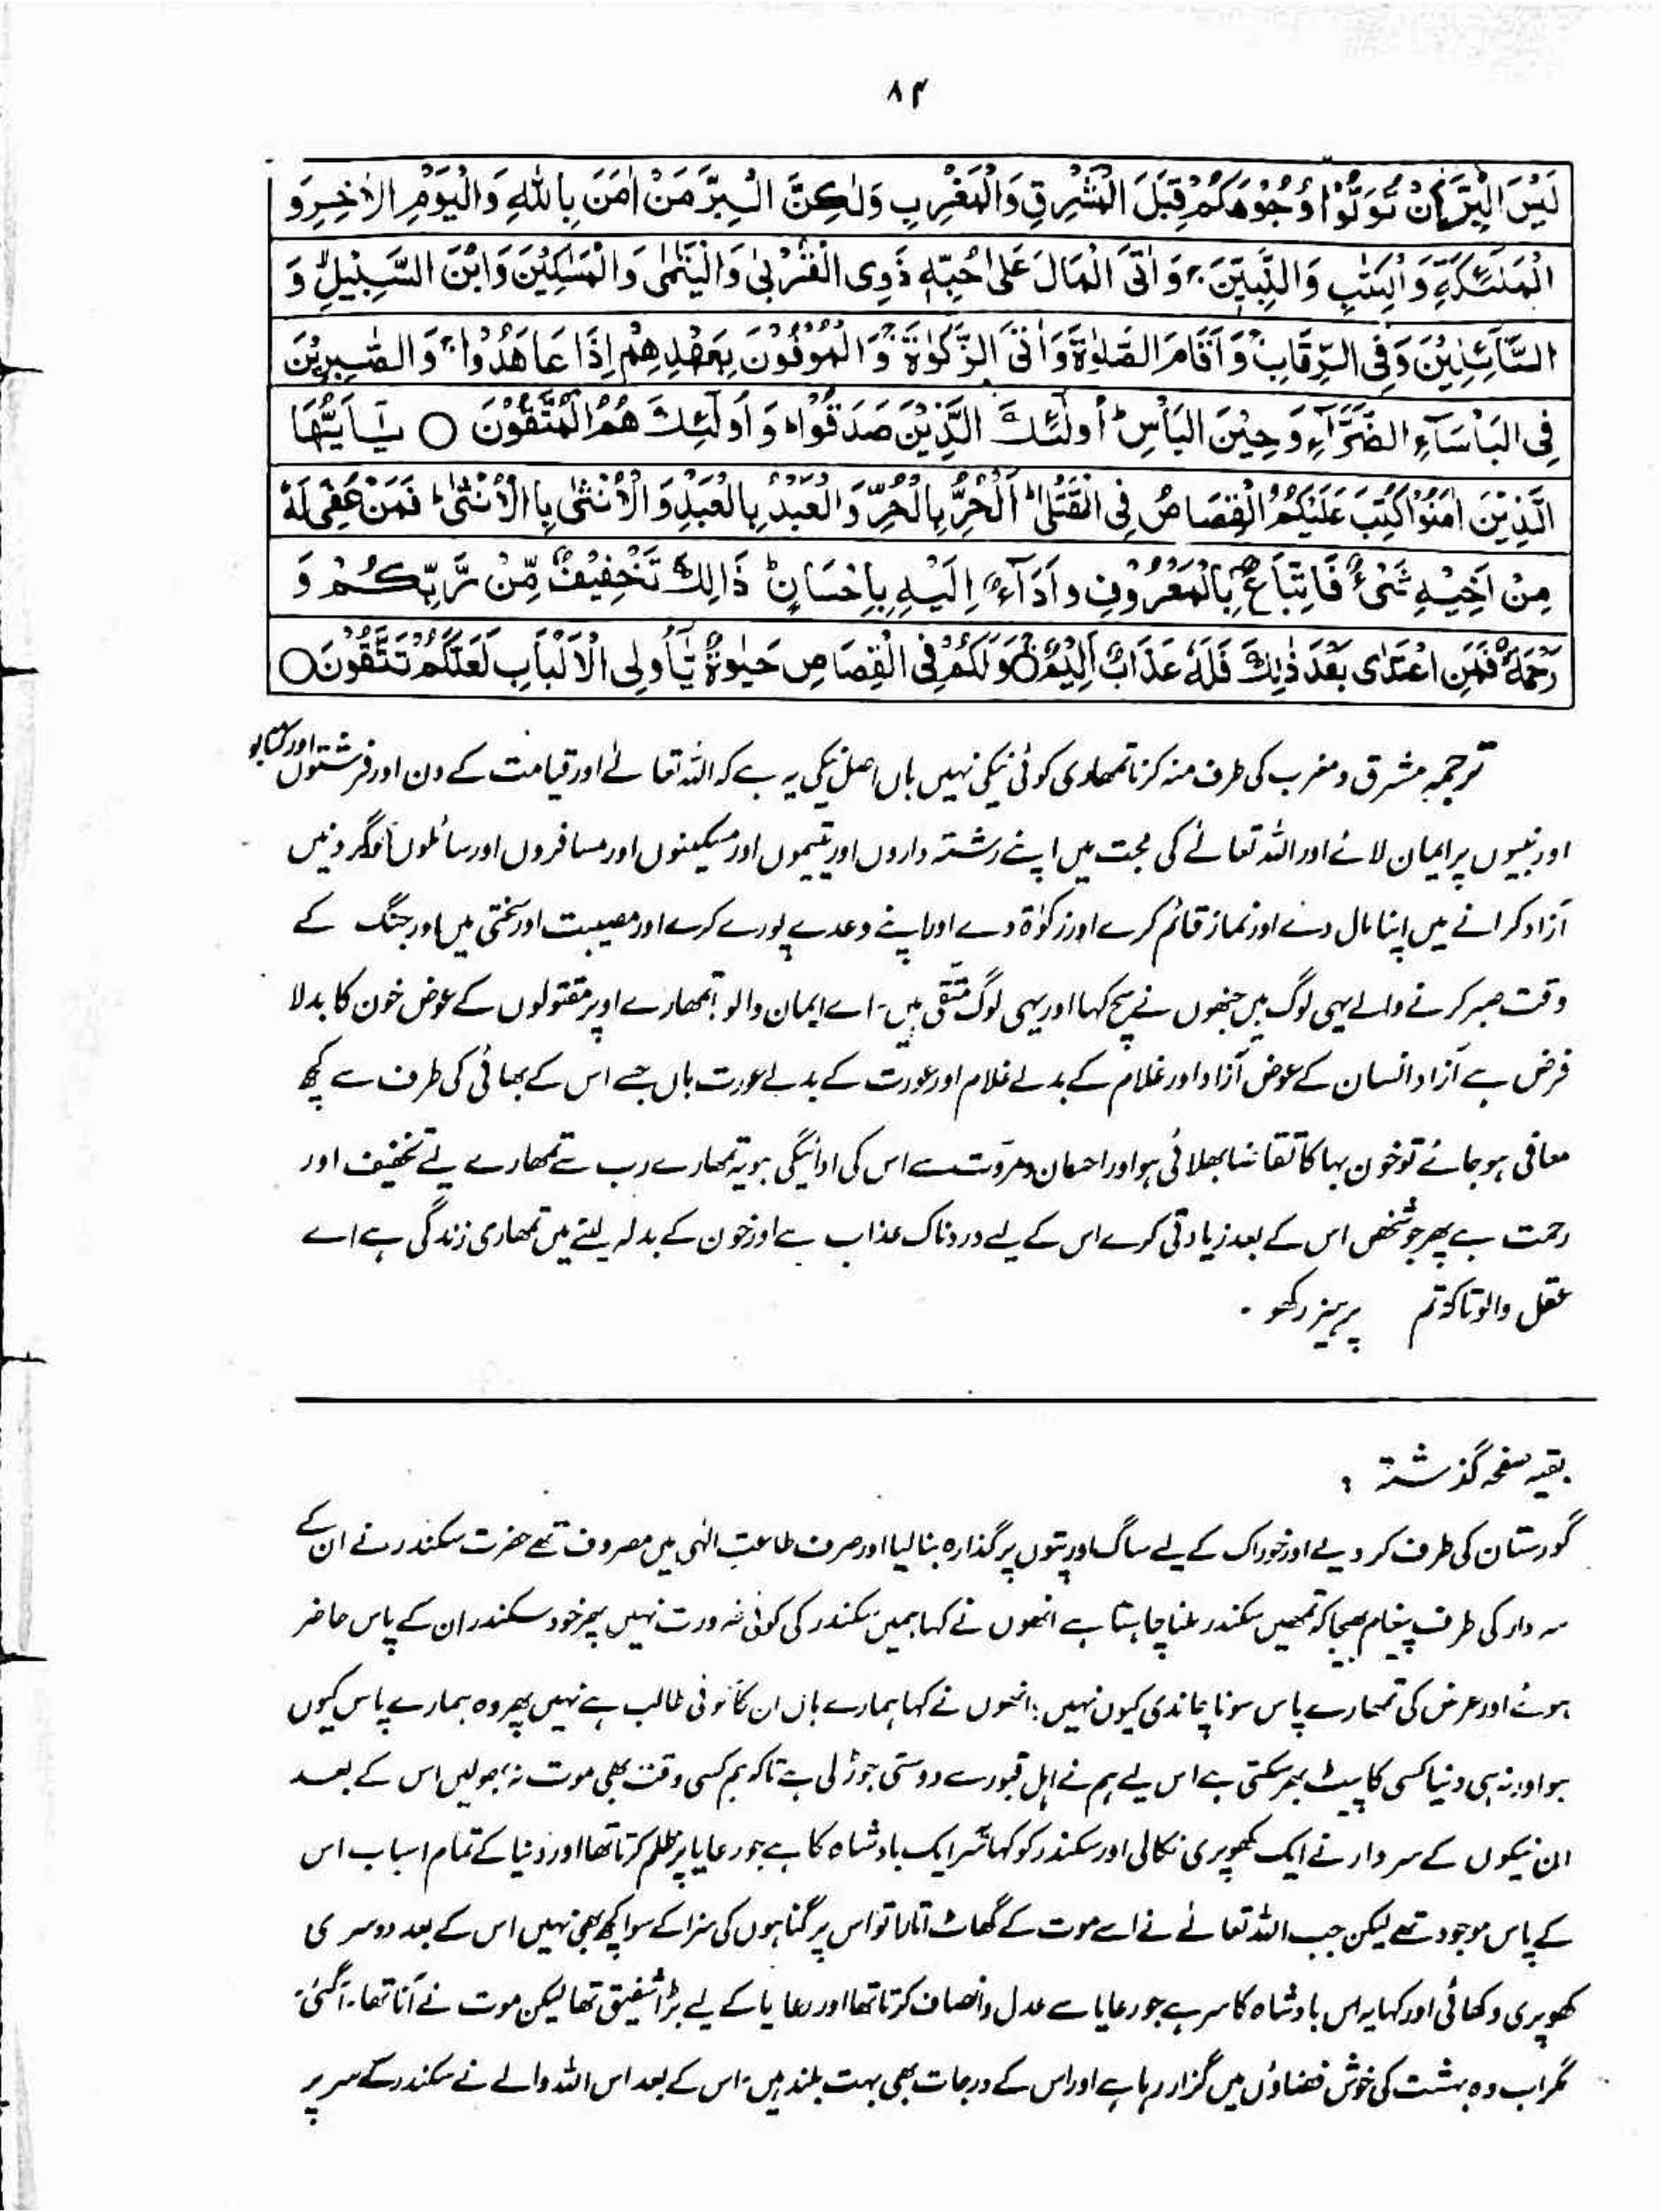 ۸۴
لَيْسَ الْبِرَّ اَنْ تُوَلُّوْا وُجُوْهَكُمْ قِبَلَ الْمَشْرِقِ وَالْمَغْرِبِ وَلٰكِنَّ الْبِرَّ مَنْ اٰمَنَ بِاللّٰهِ وَالْيَوْمِ الْاٰخِرِ وَ
الْمَلٰئِكَةِ وَالْكِتٰبِ وَالنَّبِيّٖنَ ۚ وَاٰتَى الْمَالَ عَلٰى حُبِّهٖ ذَوِى الْقُرْبٰى وَالْيَتٰمٰى وَالْمَسٰكِيْنَ وَابْنَ السَّبِيْلِ ۙ وَ
السَّآئِلِيْنَ وَفِى الرِّقَابِ ۚ وَاَقَامَ الصَّلٰوةَ وَاٰتَى الزَّكٰوةَ ۚ وَالْمُوْفُوْنَ بِعَهْدِهِمْ اِذَا عَاهَدُوْا ۚ وَالصّٰبِرِيْنَ
فِى الْبَأْسَآءِ الضَّرَّآءِ وَحِيْنَ الْبَأْسِ ؕ اُولٰٓئِكَ الَّذِيْنَ صَدَقُوْا ؕ وَاُولٰٓئِكَ هُمُ الْمُتَّقُوْنَ ○ يٰٓاَيُّهَا
الَّذِيْنَ اٰمَنُوْا كُتِبَ عَلَيْكُمُ الْقِصَاصُ فِى الْقَتْلٰى ؕ اَلْحُرُّ بِالْحُرِّ وَالْعَبْدُ بِالْعَبْدِ وَالْاُنْثٰى بِالْاُنْثٰى ؕ فَمَنْ عُفِىَ لَهٗ
مِنْ اَخِيْهِ شَىْءٌ فَاتِّبَاعٌۢ بِالْمَعْرُوْفِ وَاَدَآءٌ اِلَيْهِ بِاِحْسَانٍ ؕ ذَالِكَ تَخْفِيْفٌ مِّنْ رَّبِّكُمْ وَ
رَحْمَةٌ ؕ فَمَنِ اعْتَدٰى بَعْدَ ذٰلِكَ فَلَهٗ عَذَابٌ اَلِيْمٌ ○ وَلَكُمْ فِى الْقِصَاصِ حَيٰوةٌ يّٰٓاُولِى الْاَلْبَابِ لَعَلَّكُمْ تَتَّقُوْنَ ○
ترجمہ مشرق و مغرب کی طرف منہ کرنا تمھاری کوئی نیکی نہیں ہاں اصل نیکی یہ ہے کہ اللہ تعالےٰ اور قیامت کے دن اور فرشتوں اور کتابو
اور نبیوں پر ایمان لائے اور اللہ تعالےٰ کی محبت میں اپنے رشتہ داروں اور یتیموں اور مسکینوں اور مسافروں اور سائلوں کو گردنیں
آزاد کرانے میں اپنا مال دے اور نماز قائم کرے اور زکوٰۃ دے اور اپنے وعدے پورے کرے اور مصیبت اور سختی میں اور جنگ کے
وقت صبر کرنے والے یہی لوگ ہیں جنھوں نے سچ کہا اور یہی لوگ متقی ہیں۔ اے ایمان والو! تمھارے اوپر مقتولوں کے عوض خون کا بدلا
فرض ہے آزاد انسان کے عوض آزاد اور غلام کے بدلے غلام اور عورت کے بدلے عورت ہاں جسے اس کے بھائی کی طرف سے کچھ
معافی ہو جائے تو خون بہا کا تقاضا بھلائی ہو اور احسان و مروّت سے اس کی ادائیگی ہو یہ تمھارے رب سے تمھارے لیے تخفیف اور
رحمت ہے پھر جو شخص اس کے بعد زیادتی کرے اس کے لیے دردناک عذاب ہے اور خون کے بدلہ لینے میں تمھاری زندگی ہے اے
عقل والو تاکہ تم پرہیز رکھو ۔
بقیہ صفحہ گذشتہ :
گورستان کی طرف کر دیے اور خوراک کے لیے ساگ اور پتوں پر گذارہ بنا لیا اور صرف طاعت الٰہی میں مصروف تھے حضرت سکندر نے ان کے
سردار کی طرف پیغام بھیجا کہ تمھیں سکندر ملنا چاہتا ہے انھوں نے کہا ہمیں سکندر کی کوئی ضرورت نہیں پھر خود سکندر ان کے پاس حاضر
ہوئے اور عرض کی تمھارے پاس سونا چاندی کیوں نہیں؛ انھوں نے کہا ہمارے ہاں ان کا کوئی طالب ہے نہیں پھر وہ ہمارے پاس کیوں
ہو اور نہ ہی دنیا کسی کا پیٹ بھر سکتی ہے اس لیے ہم نے اہل قبور سے دوستی جوڑ لی ہے تاکہ ہم کسی وقت بھی موت نہ بھولیں اس کے بعد
ان نیکوں کے سردار نے ایک کھوپری نکالی اور سکندر کو کہا یہ سر ایک بادشاہ کا ہے جو رعایا پر ظلم کرتا تھا اور دنیا کے تمام اسباب اس
کے پاس موجود تھے لیکن جب اللہ تعالےٰ نے اسے موت کے گھاٹ اتارا تو اس پر گناہوں کی سزا کے سوا کچھ بھی نہیں اس کے بعد دوسری
کھوپری دکھائی اور کہا یہ اس بادشاہ کا سر ہے جو رعایا سے عدل و انصاف کرتا تھا اور رعایا کے لیے بڑا شفیق تھا لیکن موت نے آنا تھا۔ آگئی۔
مگر اب وہ بہشت کی خوش فضاؤں میں گزار رہا ہے اور اس کے درجات بھی بہت بلند ہیں۔ اس کے بعد اس اللہ والے نے سکندر کے سر پر